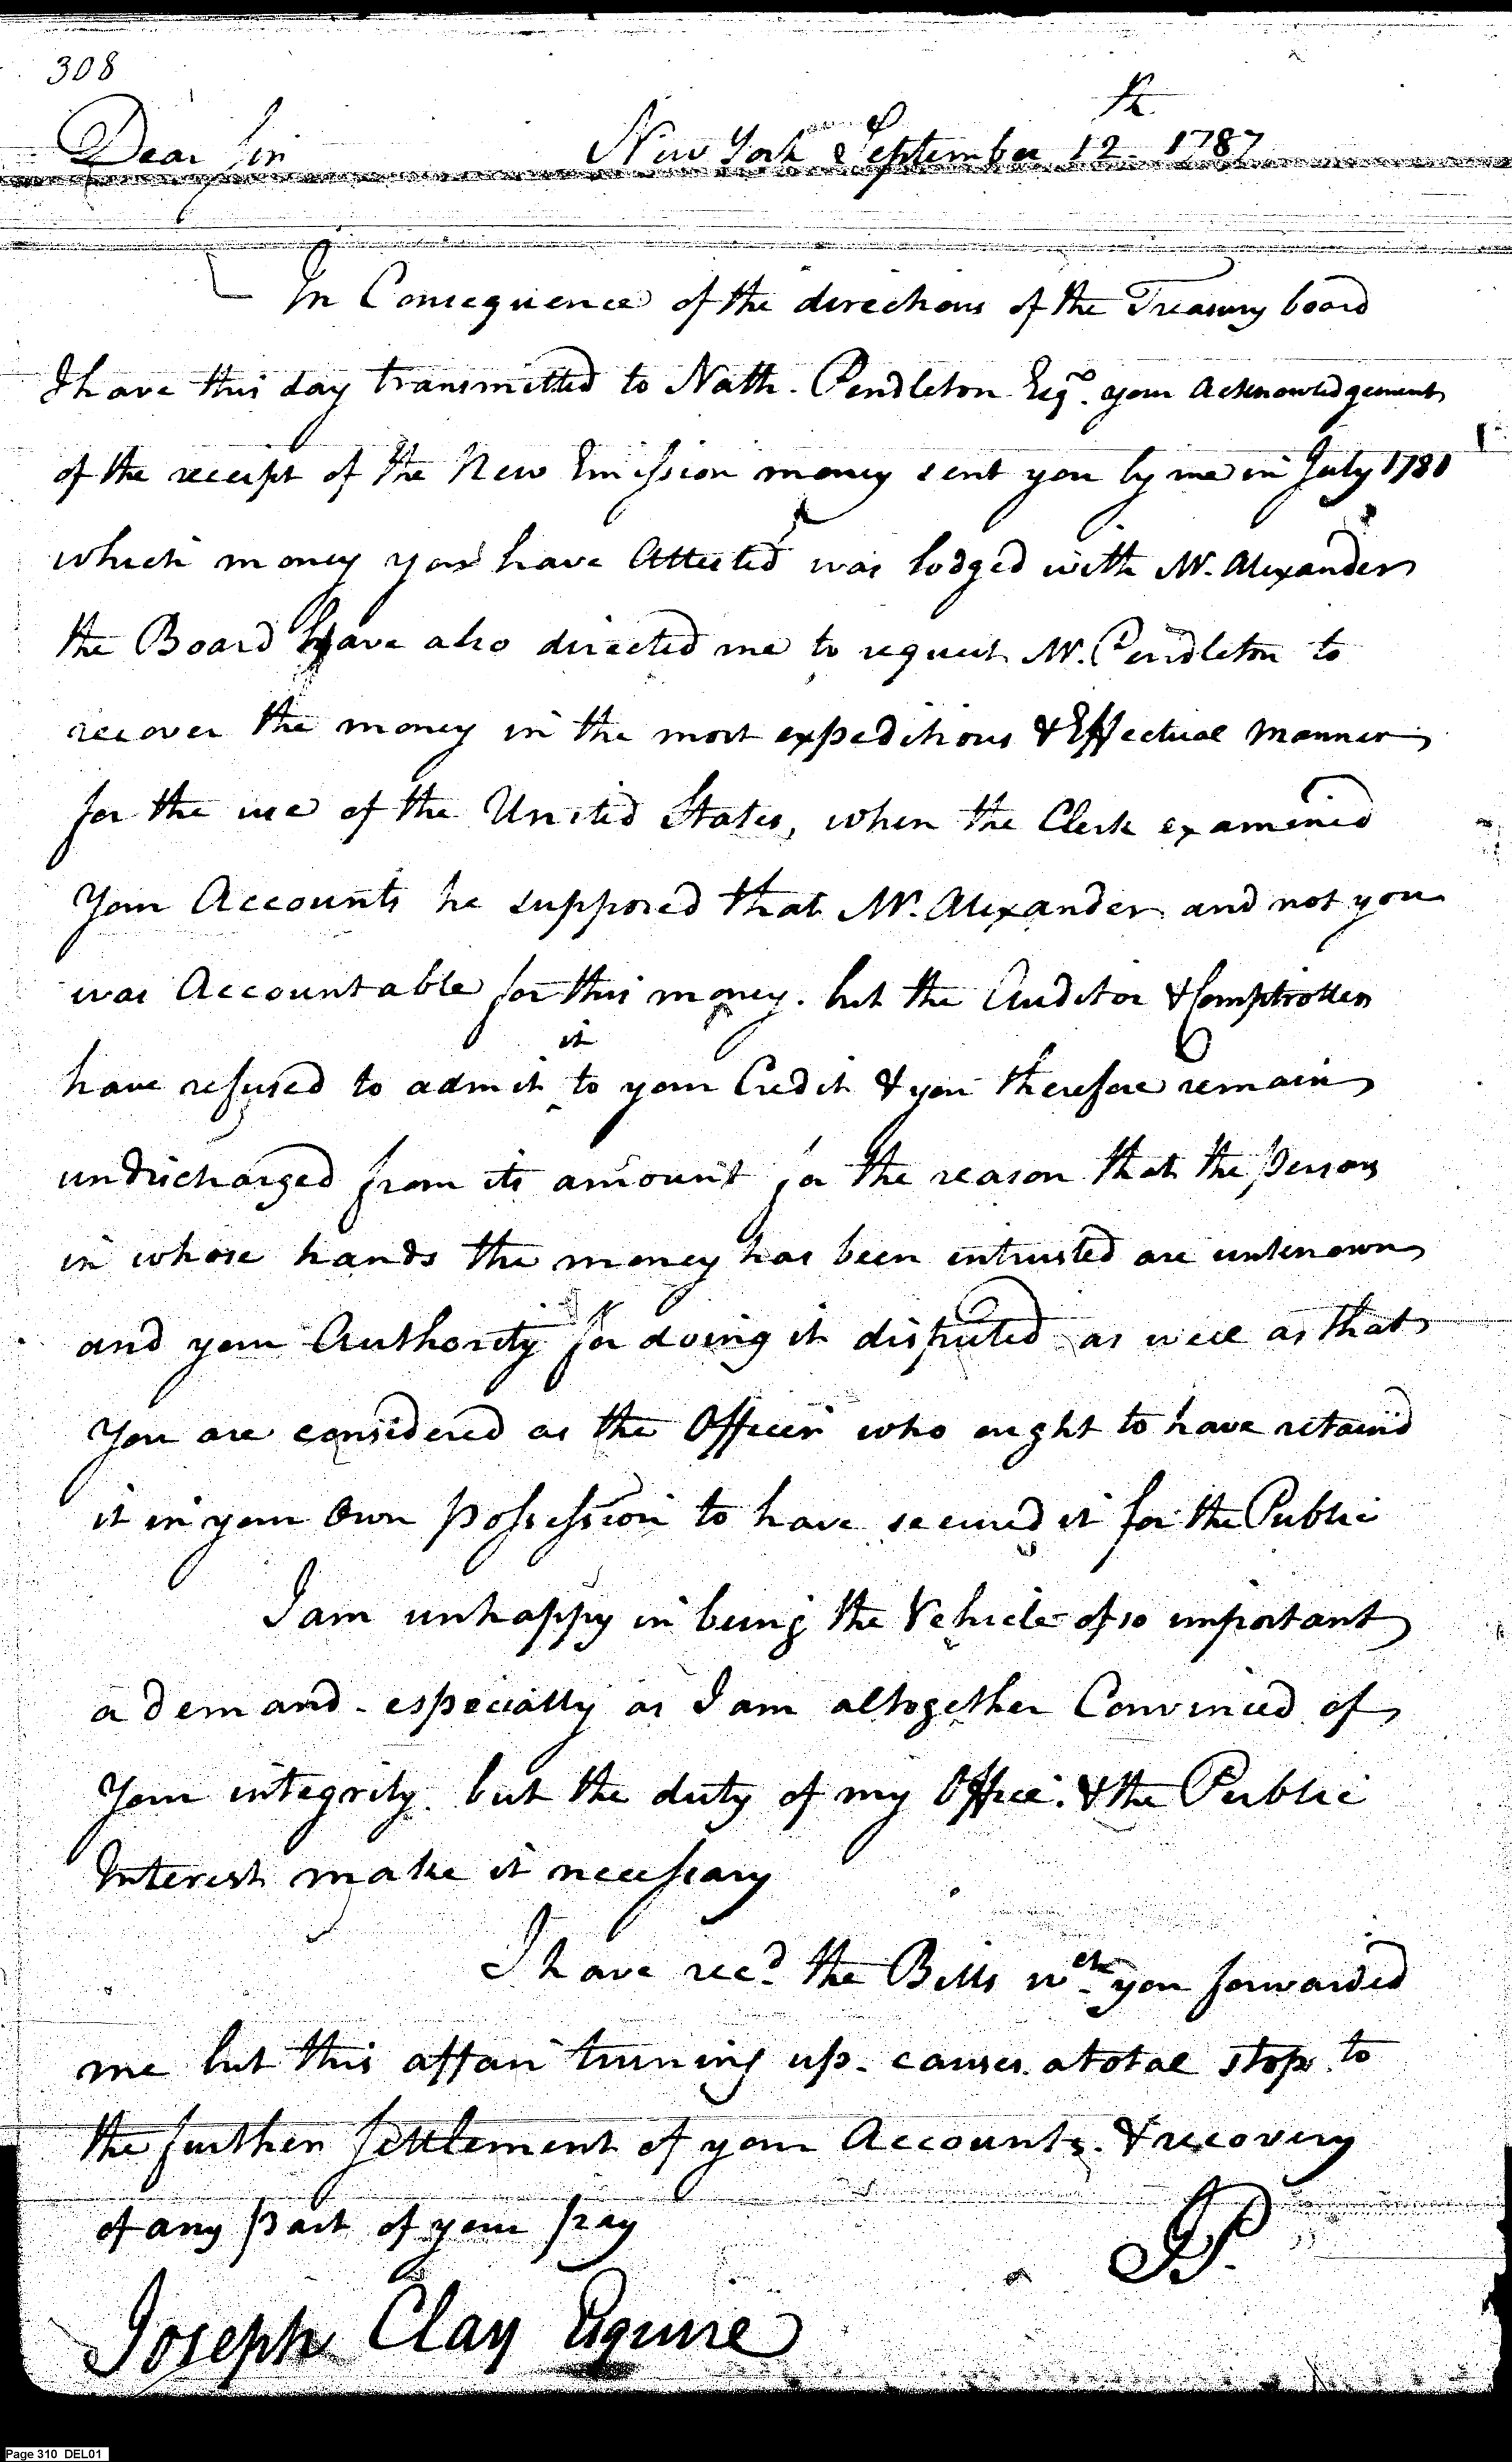 308
Dear Sir New York September 12th 1787
In Consequence of the directions of the Treasury board
I have this day transmitted to Nath. Pendleton Esqr. your Acknowledgement
of the receipt of the New Emission money sent you by me in July 1781
which money you have Attested was lodged with Mr. Alexander
the Board have also directed me to request Mr. Pendleton to
recover the money in the most expeditious & Effectual Manner
for the use of the United States, when the Clerk examined
Your Accounts he supposed that Mr. Alexander and not you
was Accountable for this money. but the Auditor & Comptroller
have refused to admit it to your Credit & you therefore remain
undischarged from its amount for the reason that the persons
in whose hands the money has been intrusted are unknown
and your Authority for doing it disputed as well as that
You are considered as the Officer who ought to have retain'd
it in your Own possession to have secured it for the Public
I am unhappy in being the Vehicle of so important
a demand - especially as I am altogether Convinced of
Your integrity. but the duty of my Office. & the Public
Interest make it necessary
I have recd. the Bills wch. you forwarded
me but this affair turning up - causes a total stop to
the further Settlement of your Accounts. & recovery
of any part of your pay
JP.
Joseph Clay Esquire
Page 310 DEL01